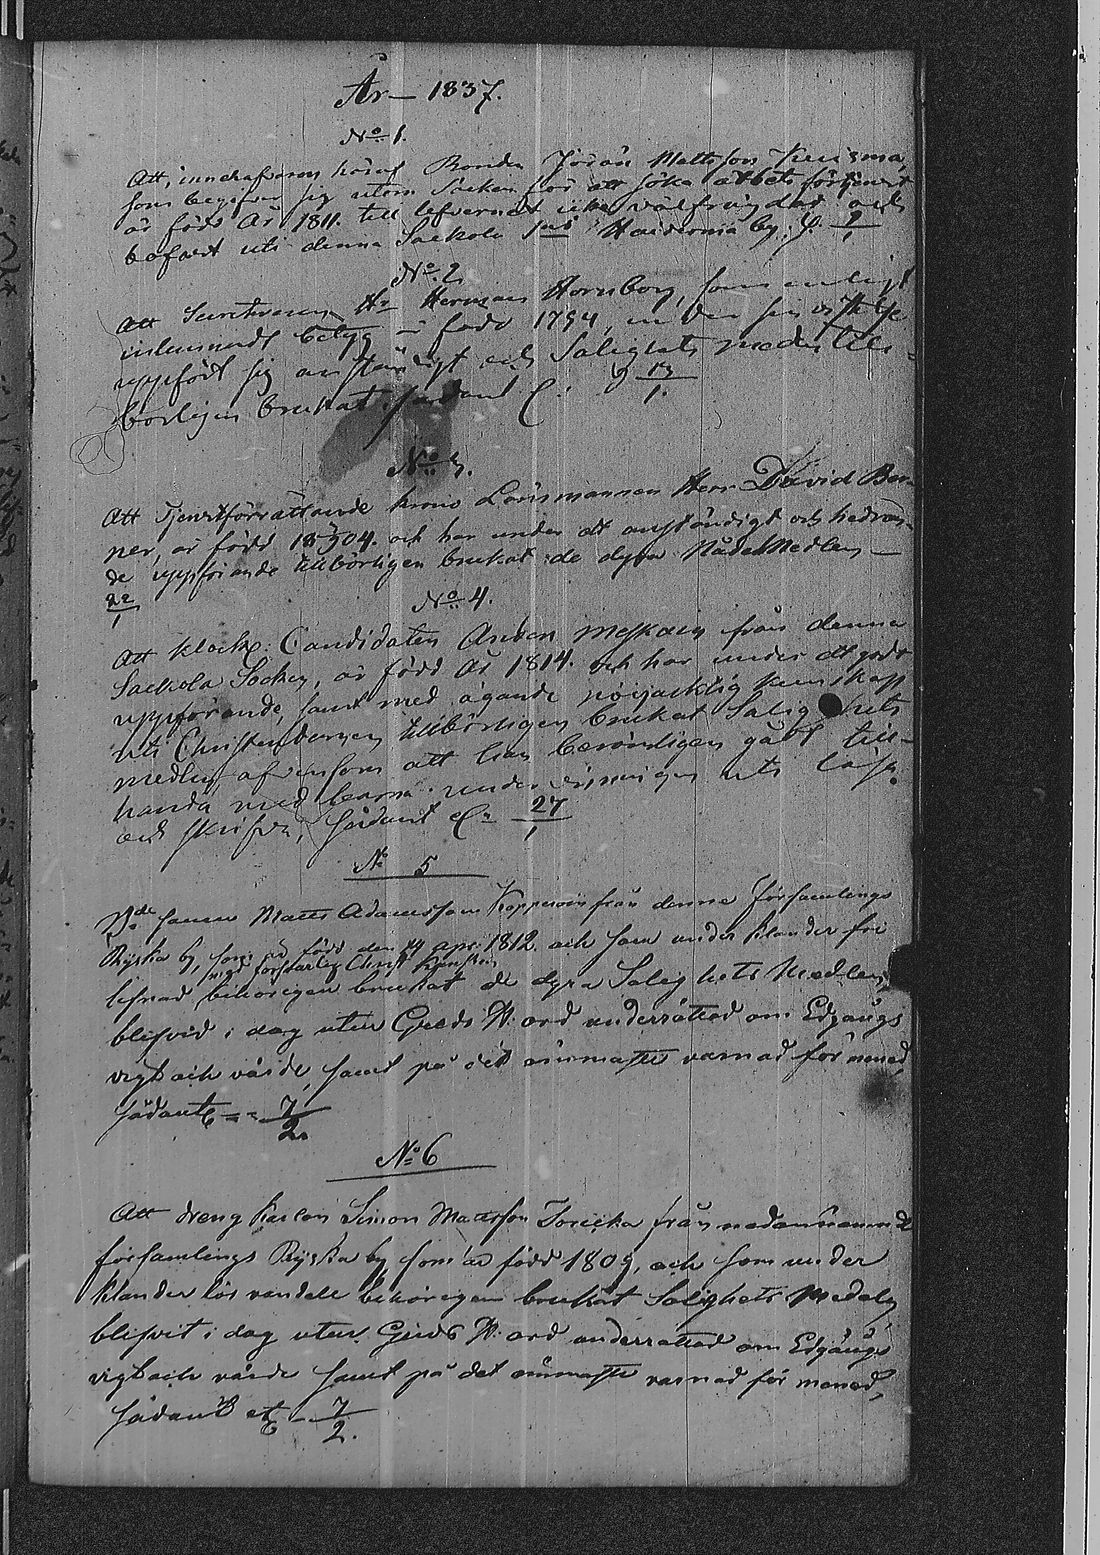 År 1837.
No 1.
Att innehafvaren häraf Bonden Jöran Mattsson
som begifver sig utom Socken för att söka arbetsförtjenst
är född År 1811. till lefvernet och
uti denna Sackola by. 2/1
No 2.
Att Hr Herman Hornborg, som enligt
betyg är född 1794,
uppfört sig anständigt och Salighets medlen till-
börligen brukat. 13/1.
No 3.
Att Tjenstförrättande krono Länsmannen Herr David Ben-
ner, är född 1804. och har under ett anständigt och hedran-
de uppförande tillbörligen brukat de dyra Nådemedlen
22/1
No 4.
Att Klock: Candidaten från denna
Sackola Socken, är född År 1814. och har under ett godt
uppförande, samt med ägande nöjacktig kunskap
uti Christendomen tillbörligen brukat Salighets
medlen, som att han berömligen gått till-
handa med barns undervisningen uti läsa
och skrifva, sådant &c 27/1
No 5
Matts Adamsson Kopperoin från denna församlings
Riiska by, som är född den 19 apr: 1812. och som under klander fri
med försvarlig Christ. kunskap
lefnad behörigen brukat de dyra Salighets Medlen,
blifvid i dag utur Guds Ord underrättad om Edgångs
vigt och värde, samt på det ömmaste varnad för mened,
sådant &c 7/2.
No 6
Att dreng Karlen Simon Mattsson från nedannämnde
församlings Riiska by som är född 1809, och som under
klanderlös vandell behörigen brukat Salighets Medeln,
blifvit i dag utur Guds Ord underrättad om Edgångs
vigt och värde samt på det ömmaste varnad för mened,
sådant etc 7/2.